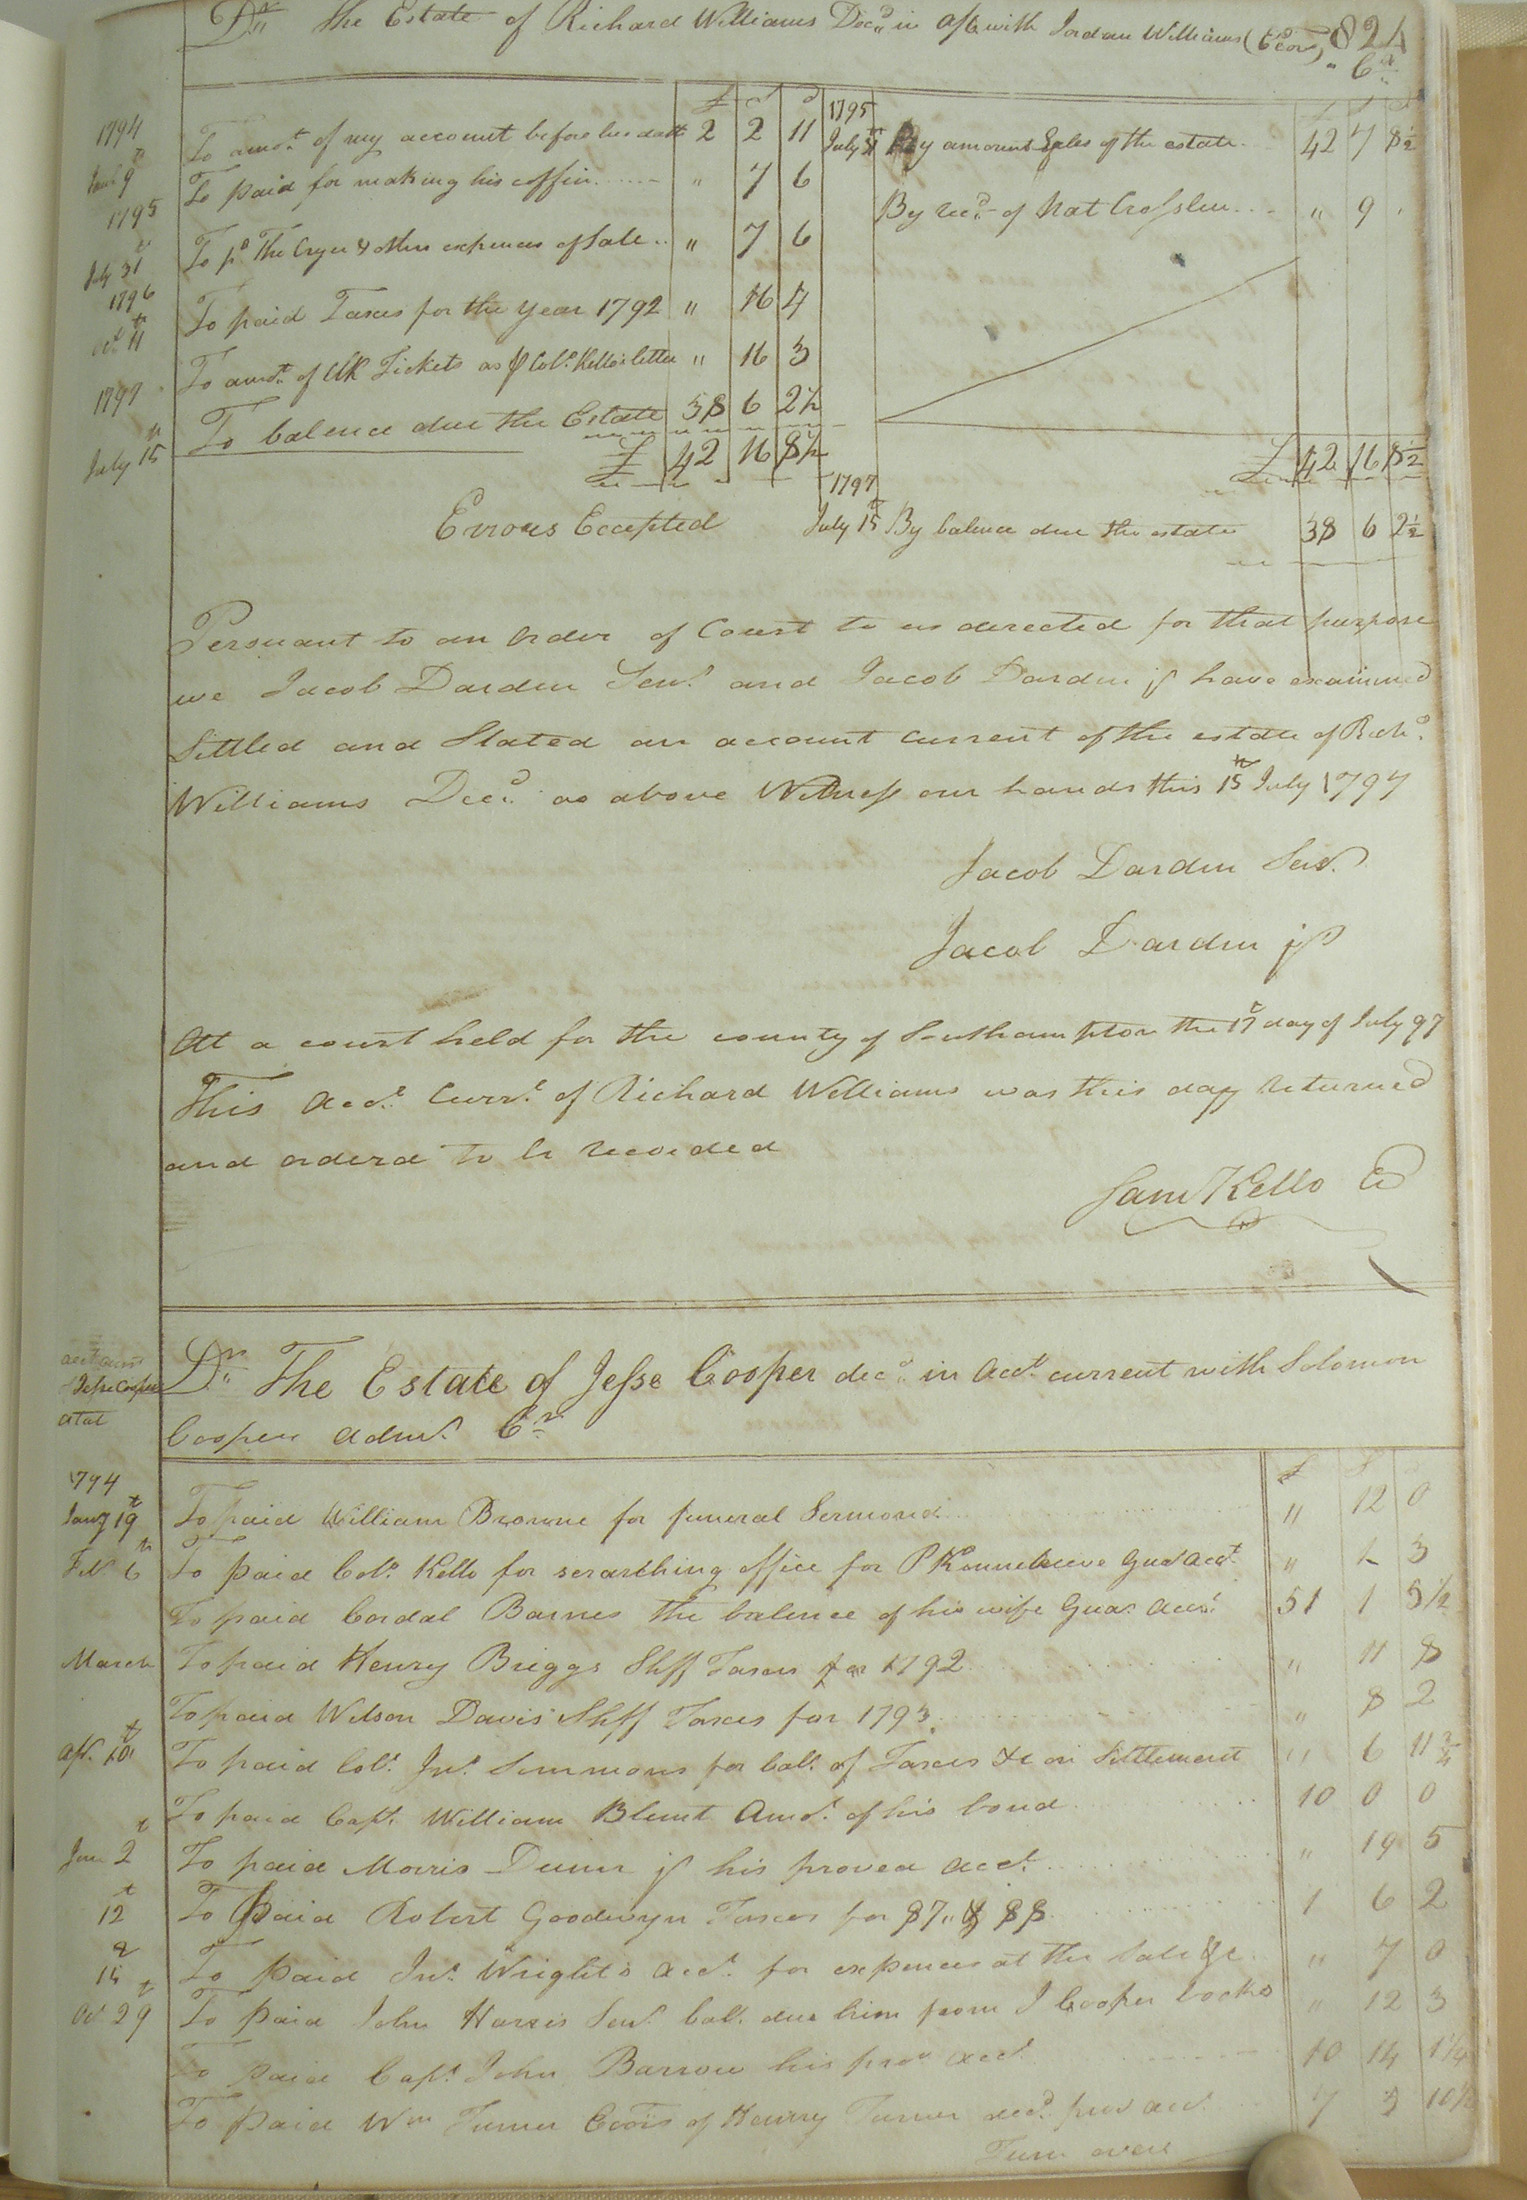 Dr. The Estate of Richard Williams Decd. in act with Jordan Williams (Ecor) Cr. 824
£ S d
1794 Jany 9th To amot. of my account before his death 2 2 11
To paid for making his coffin " 7 6
1795 July 31st To pd. The Cryer & other expences of sale " 7 6
1796 Oct. 11th To paid Taxes for the year 1792 " 16 4
To amot. of Tickets as Colo. Kello's letter " 16 3
1797 July 15th To balence due the Estate 38 6 2½
£ 42 16 8½
Errous Eccepted
1795 July 31st By amount Sales of the estate 42 7 8½
By recd. of Nat Crosslen " 9 "
£ 42 16 8½
1797 July 15t By balence due the estate 38 6 2½
Persuant to an order of Court to us derected for that purpose
we Jacob Darden Senr. and Jacob Darden jr have examined
Settled and Stated an account current of the estate of Richd.
Williams Decd. as above Witness our hands this 15th July 1797
Jacob Darden Senr.
Jacob Darden jr
At a court held for the county of Southampton the 17t day of July 97
This Acct. Currt. of Richard Williams was this day returned
and orderd to be recorded
Sam Kello C
acct curr
Jesse Cooper
Dr. The Estate of Jesse Cooper decd. in Acct. current with Solomon
Cooper admr. Cr.
£ S
1794
Jany 19t To paid William Browne for funeral Sermond " 12 0
Feb 6th To paid Colo. Kello for serarthing office for P Guad acct. " 1 3
To paid Cordal Barnes the balence of his wife Guar. Acct. 51 1 5½
March To paid Henry Briggs Shff Taxes for 1792 " 11 8
To paid Wilson Davis Shff Taxes for 1793 " 8 2
Apl. 10t To paid Colo. Jno. Simmons for bale. of Taxes &c on Settlement " 6 11¾
To paid Capt. William Blunt Amot. of his bond 10 0 0
June 2t To paid Morris Dunn jr his proved acct. " 19 5
12t To paid Robert Goodwyn Taxes for 87 & 88 1 6 2
To paid Jno. Wright's acct. for expences at the sale &c. " 7 0
Oct 29t To paid John Harris Senr. bale. due him from J Cooper books " 12 3
To paid Capt. John Barrow his prod acct. 10 14 1¼
To paid Wm Turner Ecors of Henry Turner decd. prov acct. 7 3 10½
Turn over